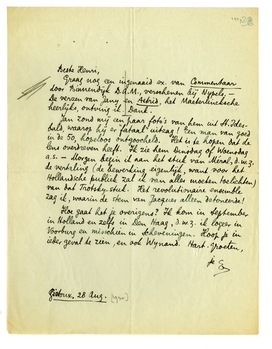 Beste Henri,
Graag nog een ingenaaid ex. van Commentaar
door Binnendijk D.A.M., verschenen bij Nypels, –
De verzen van Jany en Astrid, het Maeterlinckische
heerlijk, ontving ik. Dank.
Jan zond mij een paar foto's van hem uit St. Ides-
bald, waarop hij er fataal uitzag! Een man van goed
in de 50, hopeloos ontgoocheld. Het is te hopen dat de
lens overdreven heeft. Ik zie hem Dinsdag of Woensdag
a.s. – Morgen begin ik aan het stuk van Méral, d.w.z.
de vertaling (de bewerking eigenlijk, want voor het
Hollandsche publiek zal ik van alles moeten toelichten)
van dat Trotsky-stuk. Het revolutionaire ensemble
zag ik, waarin de stem van Jacques alleen detoneerde!
Hoe gaat het je overigens? Ik kom in September
in Holland en zelfs in Den Haag, d.w.z. ik logeer in
Voorburg en misschien in Scheveningen. Hoop je in
ieder geval te zien, en ook Wijnand. Hart. groeten,
je E.
Gistoux, 28 Aug.